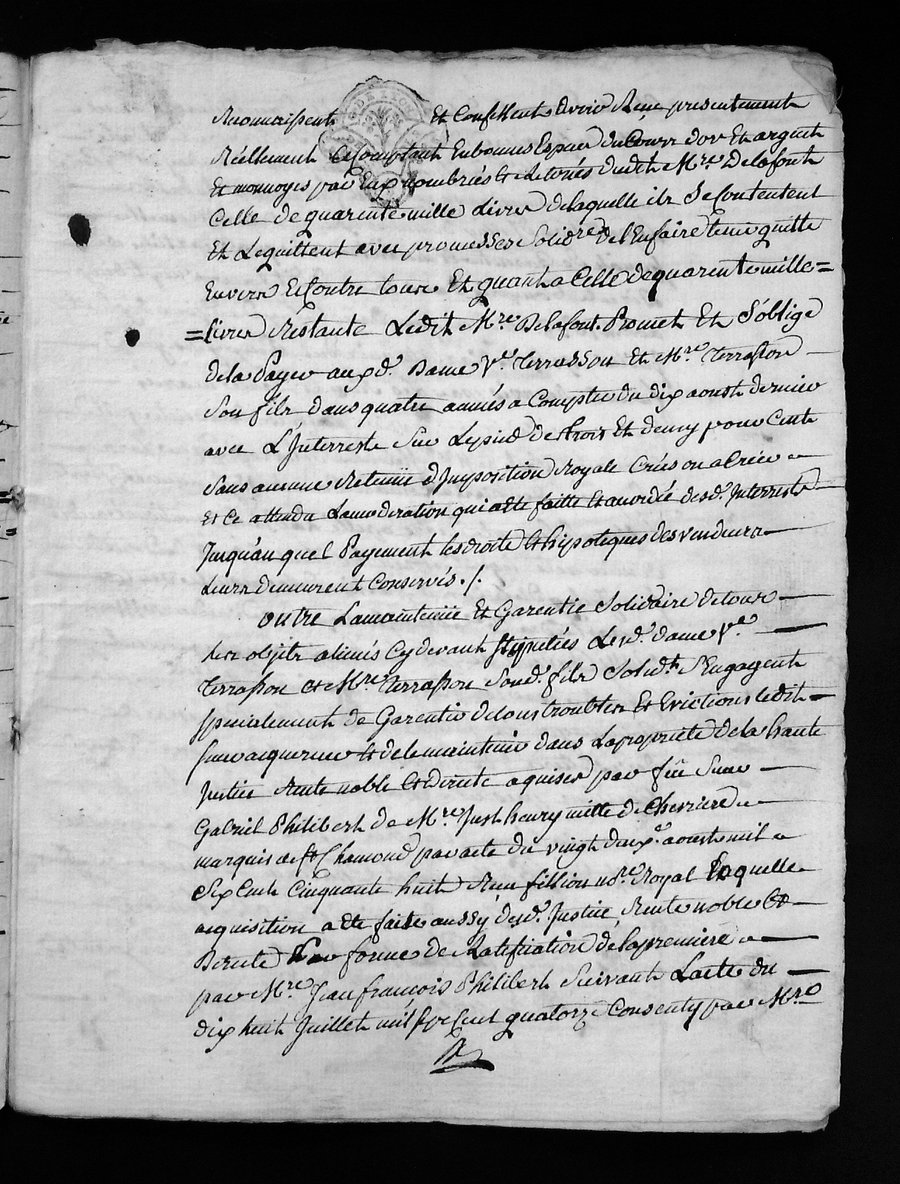 Reconnaissent Et Confessent avoir Reçu presentement
Réellement Et Comptant En bonnes Especes du Cours d'or Et argent
Et monnoyes par Eux nombrées Et Retirées dudit Mre. Delafont
Celle de quarente mille Livres de laquelle ils Se Contentent
Et Lequittent avec promesse Solidre. de l'En faire tenir quitte
Envers Et Contre tous Et quant a Celle de quarente mille =
= Livres Restante Ledit Mre. Delafont. Promet Et S'oblige
de la Payer auxd. Dame Ve. Terrasson Et Mre. Terrasson
Son fils dans quatre années a Compter du dix aoust dernier
avec L'Interrest Sur Le pied de trois Et demy pour Cent
Sans aucune Retenüe d'Imposition Royale Créés ou a Créer
Et Ce attendu La moderation qui a été faitte Et accordée desd. Interrests
Jusqu'au quel Payement les droits Et hipoteques des vendeurs
Leurs demeurent Conservés ./.
outre La maintenüe Et Garentie Solidaire de tous
les objets alienés Cy devant Lesd. dame Ve.
Terrasson Et Mre. Terrasson Sond. fils Solidt. S'Engagent
specialement de Garentir de tous troubles Et Evictions ledit
sieur acquereur Et de le maintenir dans La propriété de la haute
Justice Rente noble Et directe aquises par feü Sieur
Gabriel Philibert de Mre. Just henry mitte de Chevriere
marquis de St. Chamond par acte du vingt deux. aoust mil
Six Cent Cinquante huit Reçu fillion nore. Royal Laquelle
acquisition a été faite aussy desd. Justice Rente noble Et
Directe Par forme de Ratification de la premiere
par Mre. Jean francois Philibert Suivant L'acte du
dix huit Juillet mil sept Cent quatorze Consenty par Mre.